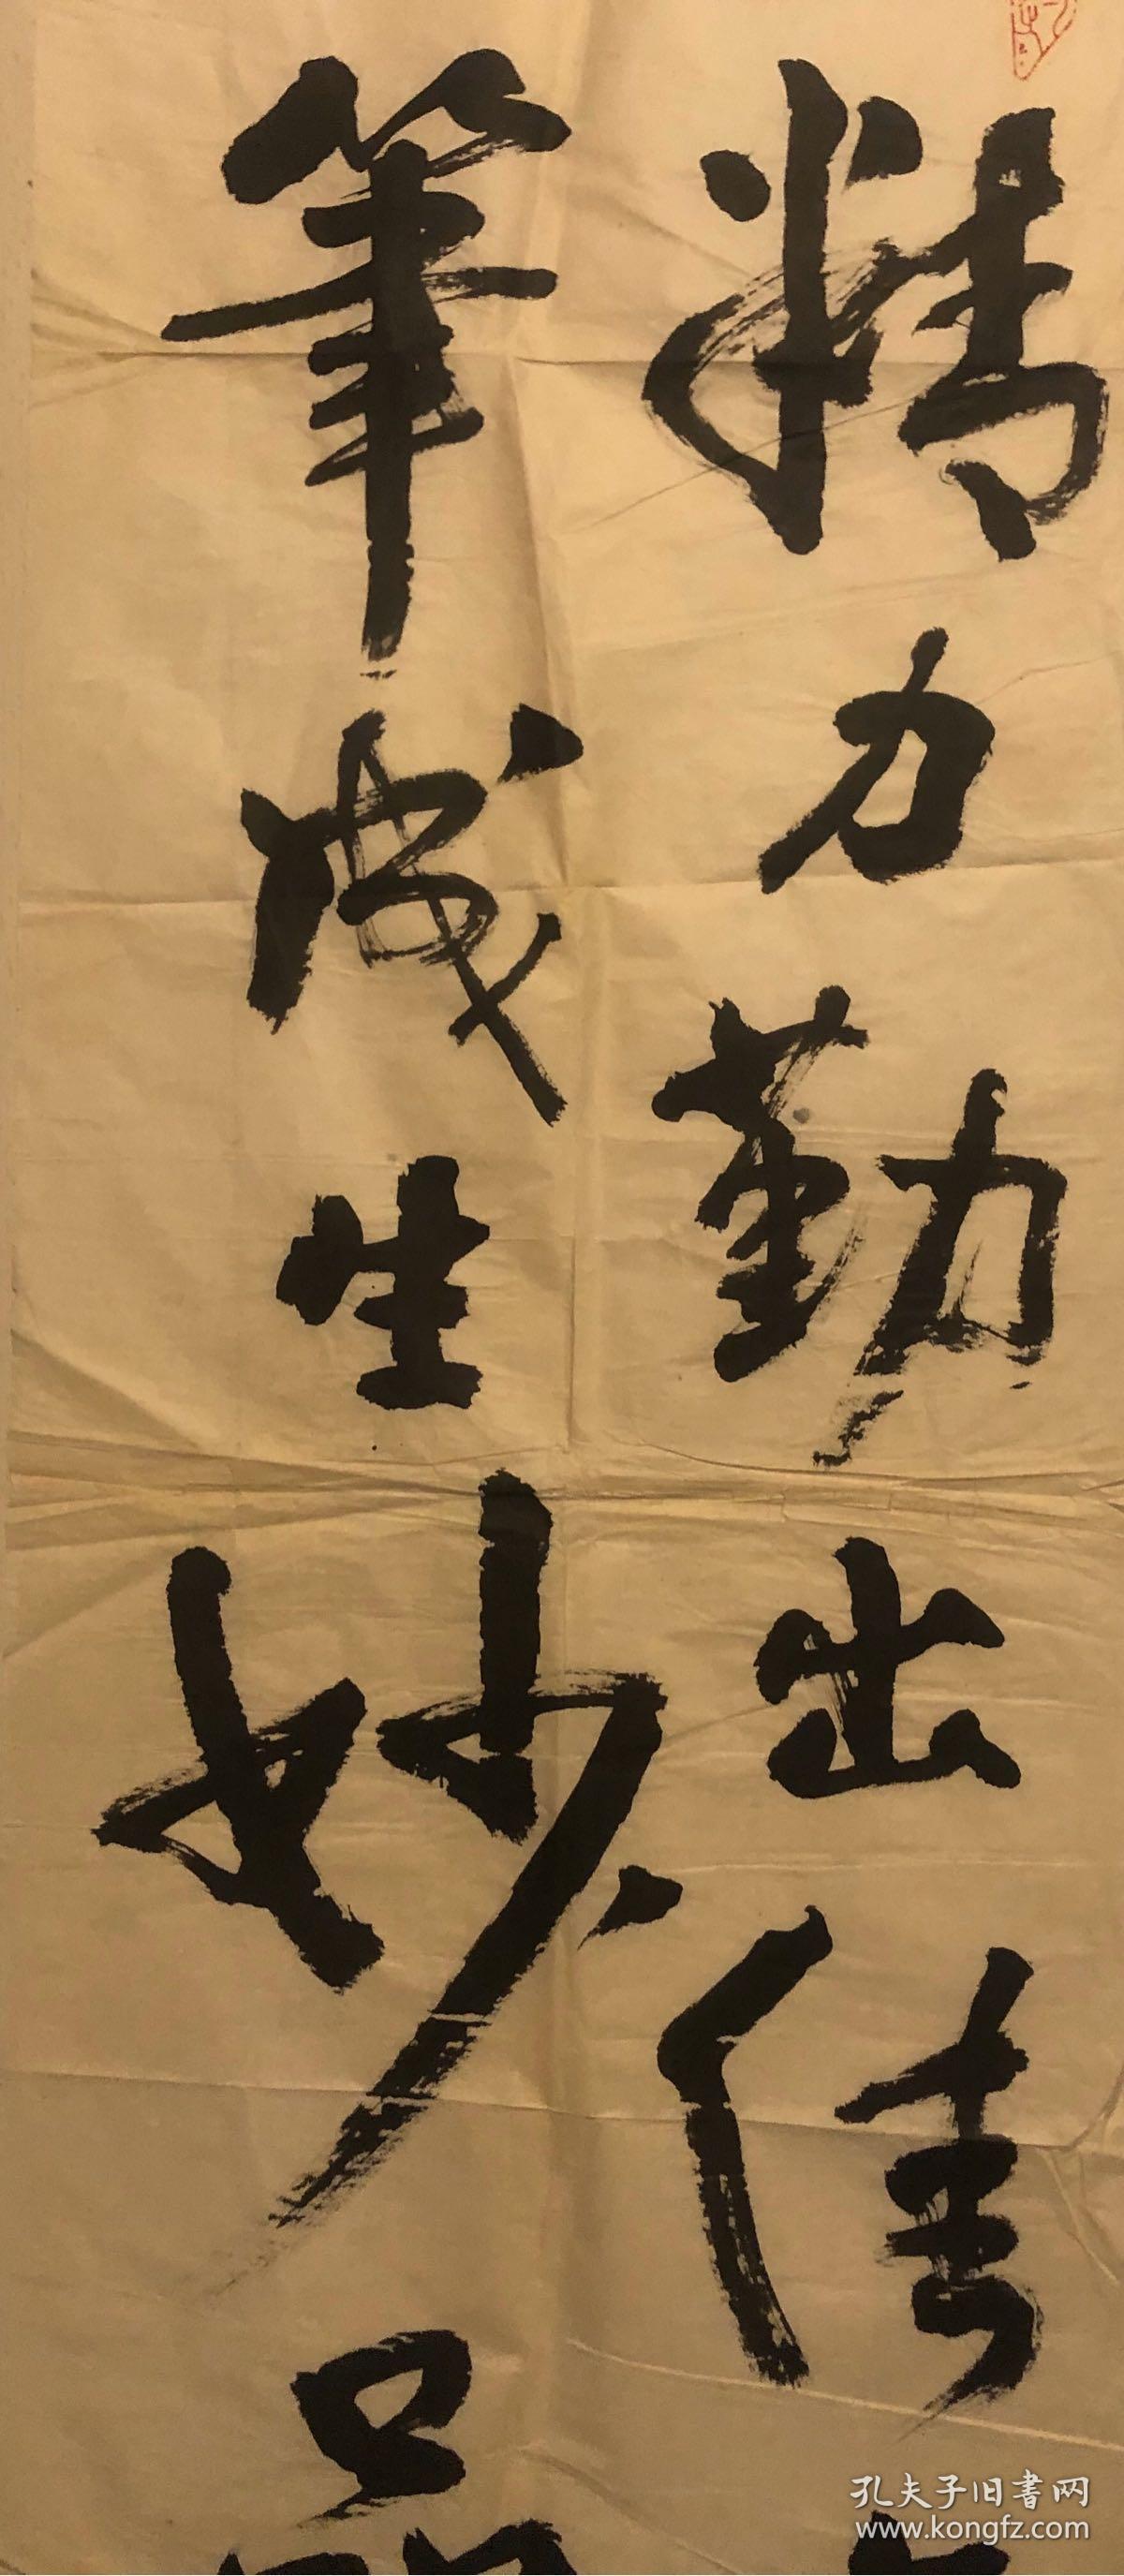 精力勤出佳
筆成生妙品
孔夫子旧書网
www.kongfz.com